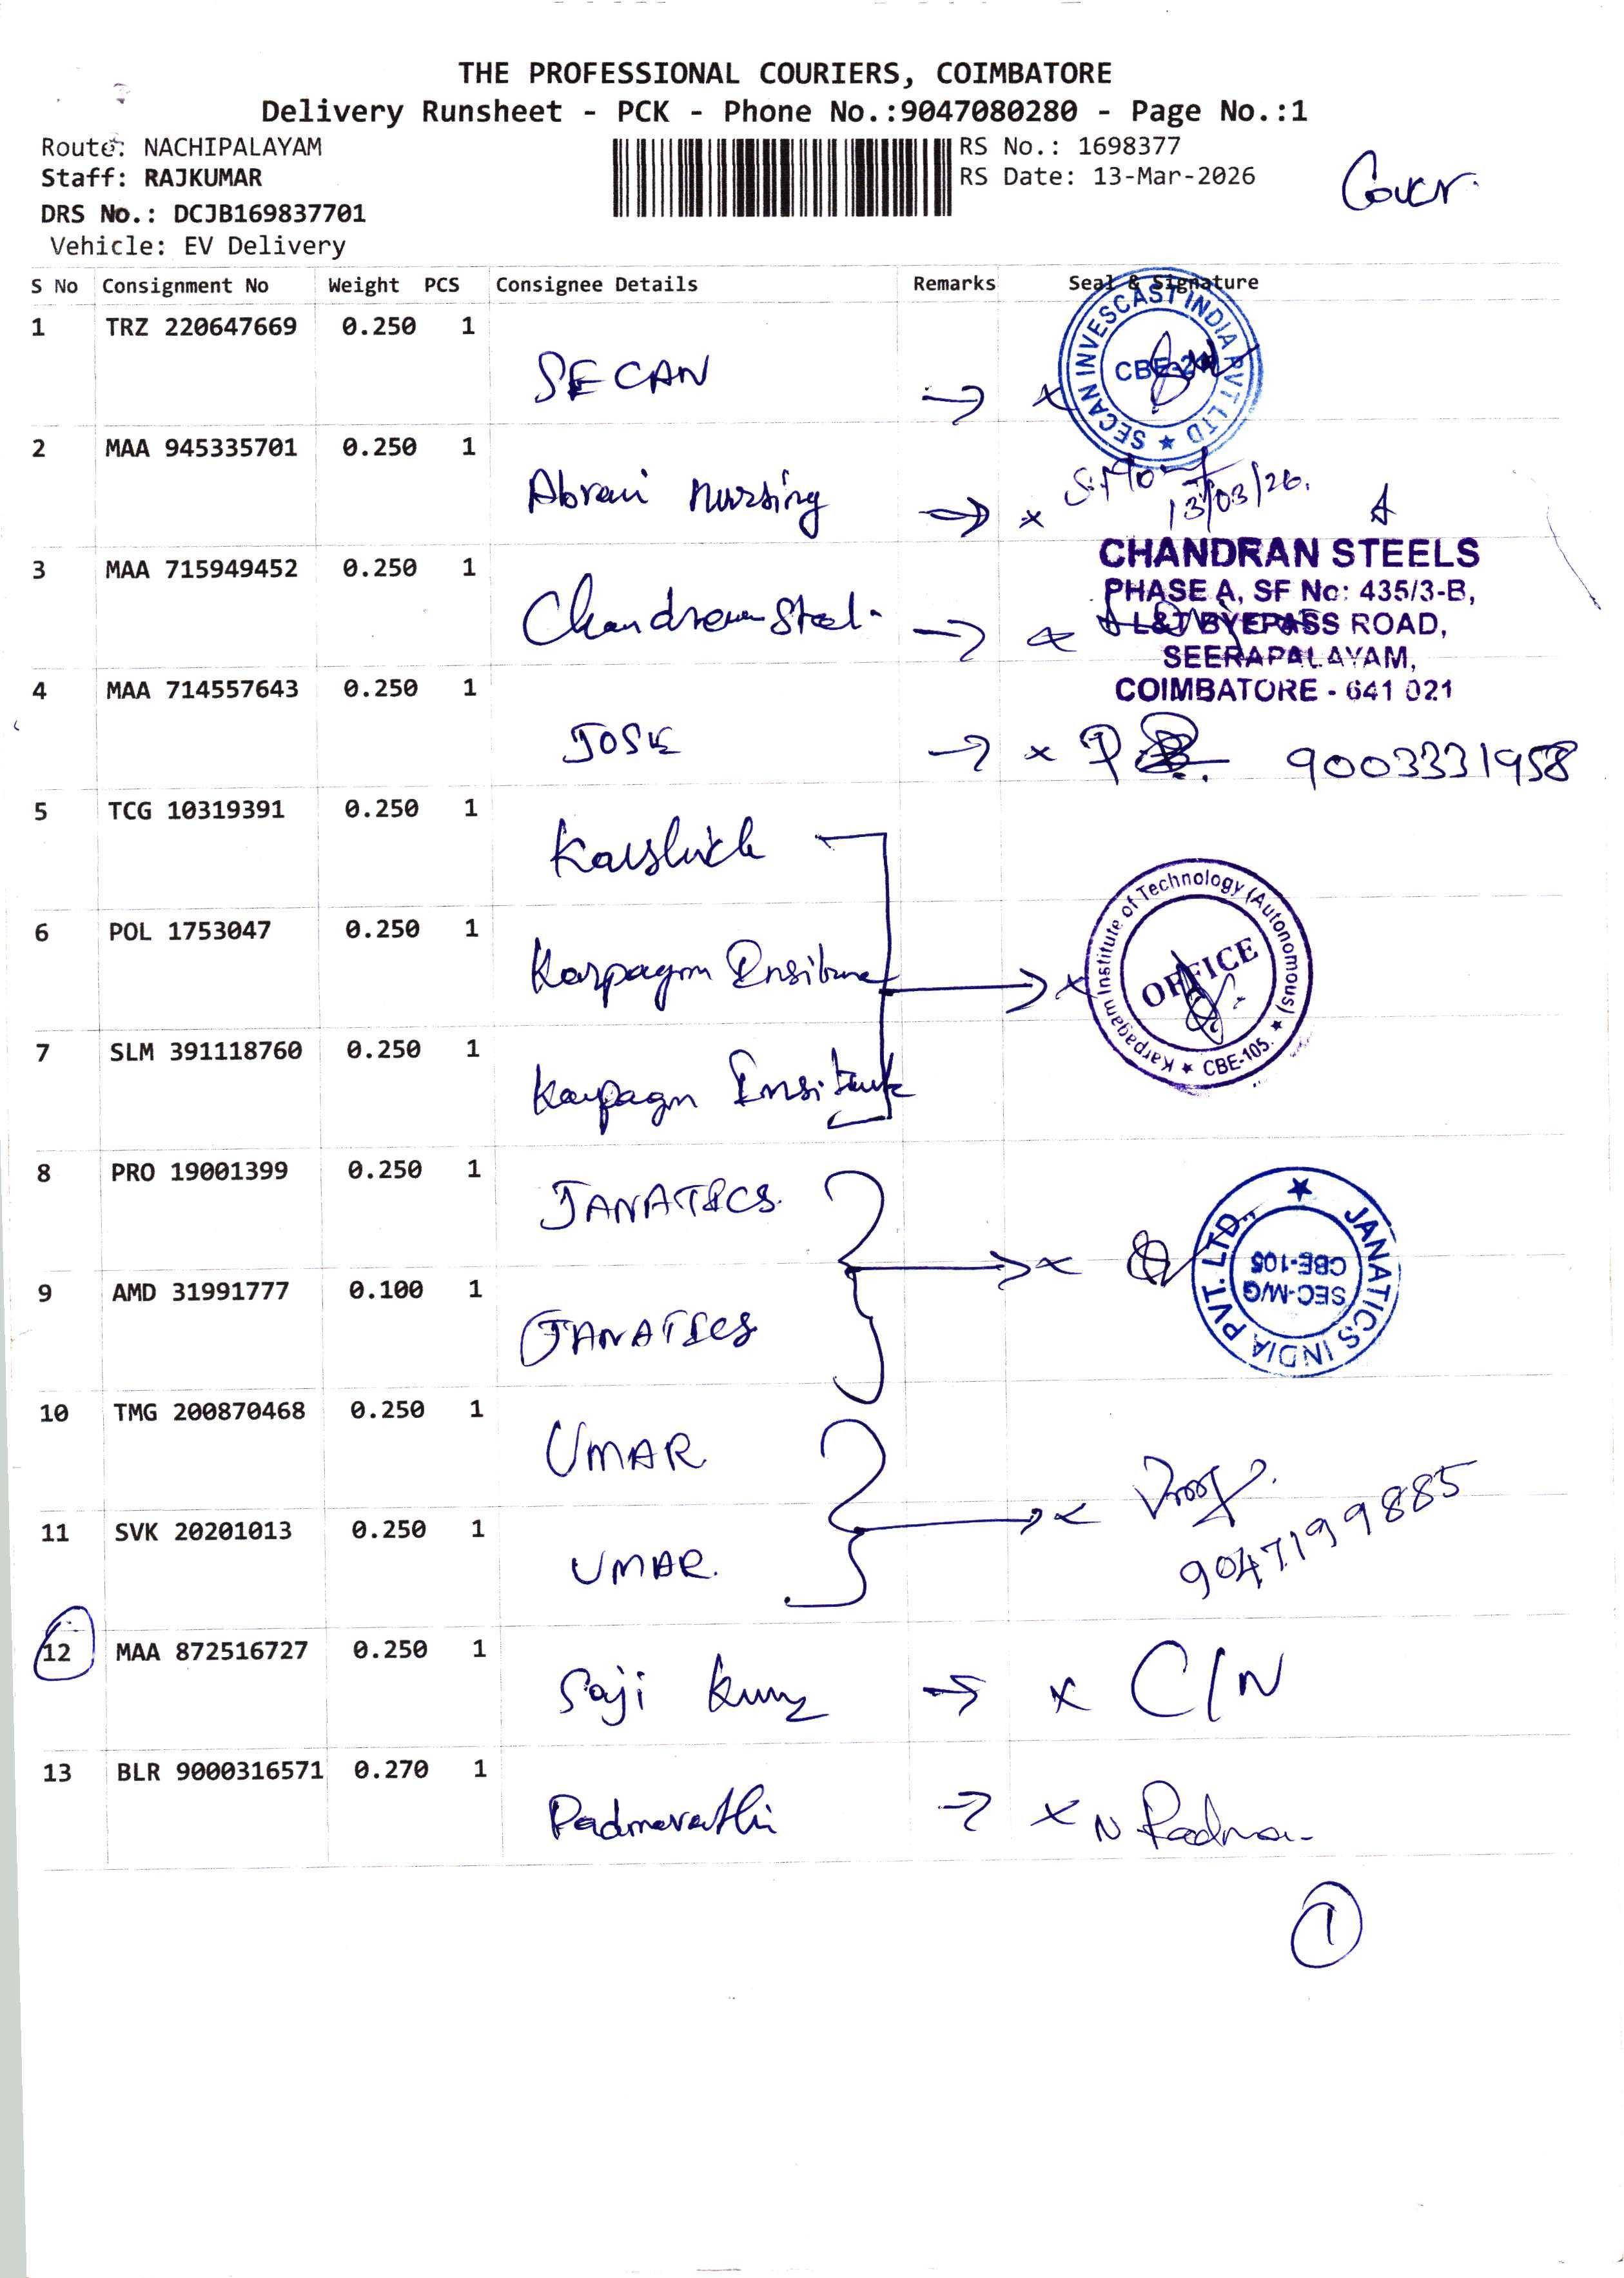 THE PROFESSIONAL COURIERS, COIMBATORE
Delivery Runsheet - PCK - Phone No.:9047080280 - Page No.:1
Route: NACHIPALAYAM
Staff: RAJKUMAR
DRS No.: DCJB169837701
Vehicle: EV Delivery
RS No.: 1698377
RS Date: 13-Mar-2026
Cover
S No Consignment No Weight PCS Consignee Details Remarks Seal & Signature
1 TRZ 220647669 0.250 1
SECAN
SECAN INVESCAST INDIA PVT LTD
2 MAA 945335701 0.250 1
Nursing
13/03/26.
3 MAA 715949452 0.250 1
Chandran Steel
CHANDRAN STEELS
PHASE A, SF No: 435/3-B,
L&T BYEPASS ROAD,
SEERAPALAYAM,
COIMBATORE - 641 021
4 MAA 714557643 0.250 1
9003331958
5 TCG 10319391 0.250 1
6 POL 1753047 0.250 1
Karpagam Institute of Technology (Autonomous)
OFFICE
CBE-105.
7 SLM 391118760 0.250 1
8 PRO 19001399 0.250 1
JANATICS
JANATICS INDIA PVT. LTD.,
SEC-M/G
CBE-105
9 AMD 31991777 0.100 1
JANATICS
10 TMG 200870468 0.250 1
UMAR
11 SVK 20201013 0.250 1
UMAR.
9047199885
12 MAA 872516727 0.250 1
Saji C/N
13 BLR 9000316571 0.270 1
Padmavathi N Padma
1